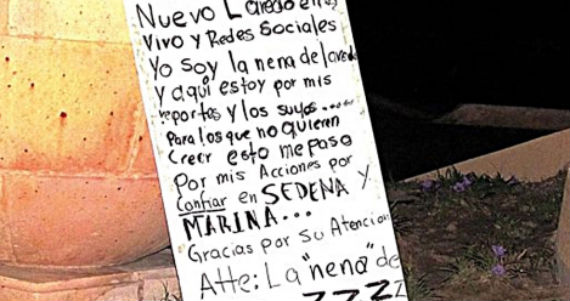 Nuevo Laredo en
Vivo y Redes Sociales
Yo Soy la nena de laredo
Y aquí estoy por mis
reportes y los suyos.....
Para los que no quieren
Creer esto me paso
Por mis Acciones por
Confiar en SEDENA y
MARINA...
Gracias por su Atencion
Atte: La "nena" de
ZZZZ